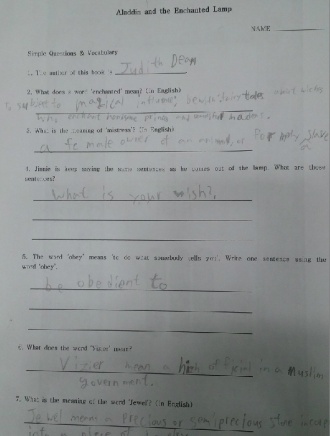 Aladdin and the Enchanted Lamp
NAME
Simple Questions & Vocabulary
1. The author of this book is Judith Dean
2. What does a word 'enchanted' mean? (In English)
subject to magical influence; bewitched
3. What is the meaning of 'mistress'? (In English)
a female owner of an animal, or formerly slave
4. Jinnie is keep saying the same sentences as he comes out of the lamp. What are these
sentences?
What is your wish?
5. The word 'obey' means 'do what somebody tells you'. Write one sentence using the
word 'obey'.
be obedient to
6. What does the word 'Vizier' mean?
Vizier mean a high official in a muslim
government.
7. What is the meaning of the word 'Jewel'? (In English)
Jewel mean a precious or semiprecious stone